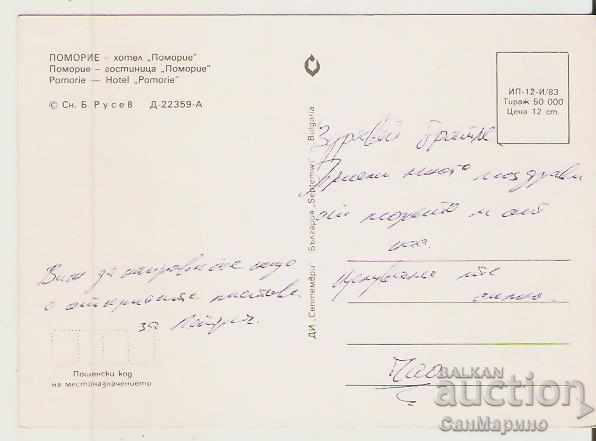 ПОМОРИЕ – хотел „Поморие"
Поморие – гостиница „Поморие"
Pomorie — Hotel „Pomorie"
© Сн. Б. Русев Д-22359-А
ДИ „Септември" България „Septemvri" Bulgaria
ИП-12-И/83
Тираж 50 000
Цена 12 ст.
Здравей братле
Приеми много поздрави
от морето и от
Целуваме те
силно.
Чао
Виж да направиш нещо
с откриците
за
Пощенски код
на местоназначението
BALKAN
auction
СанМарино